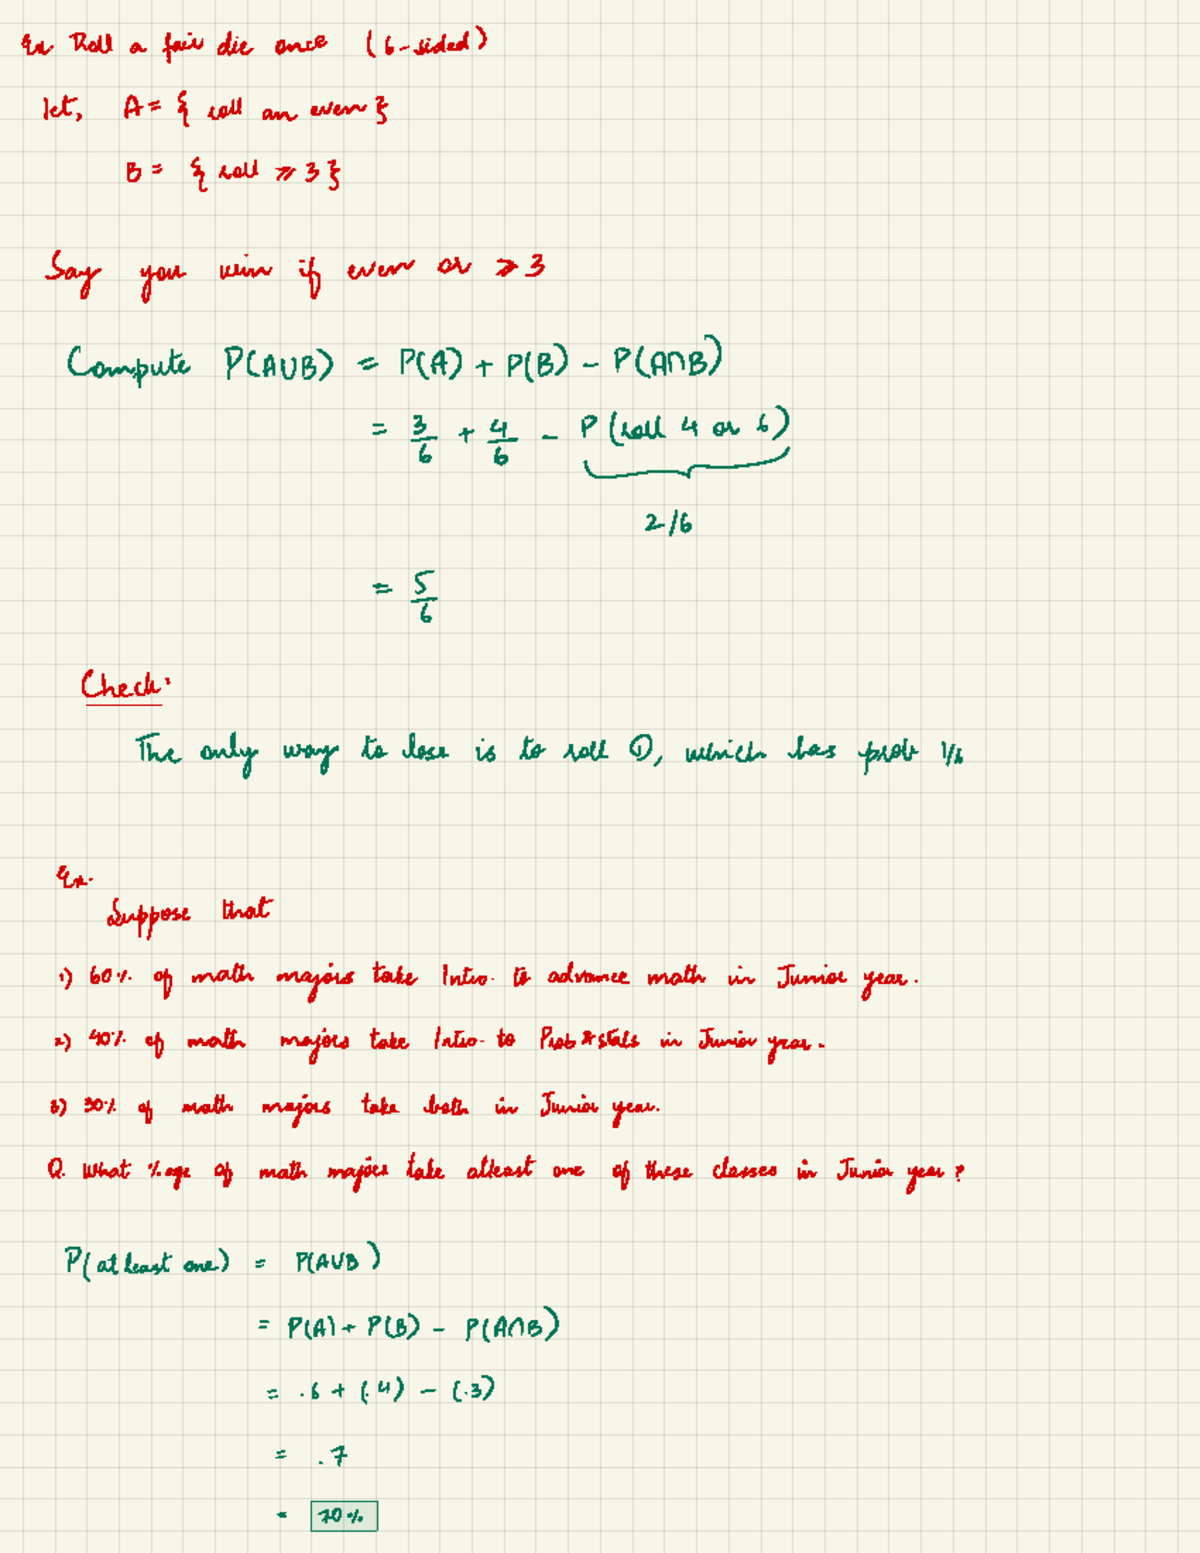 Ex Roll a fair die once (6-sided)
let, A = { roll an even }
B = { roll ⩾ 3 }
Say you win if even or ⩾ 3
Compute P(A∪B) = P(A) + P(B) - P(A∩B)
= 3/6 + 4/6 - P(roll 4 or 6)
2/6
= 5/6
Check:
The only way to lose is to roll ①, which has prob 1/6
Ex.
Suppose that
1) 60% of math majors take Intro. to advance math in Junior year.
2) 40% of math majors take Intro. to Prob & stats in Junior year.
3) 30% of math majors take both in Junior year.
Q. What %age of math majors take atleast one of these classes in Junior year?
P(at least one) = P(A∪B)
= P(A) + P(B) - P(A∩B)
= .6 + (.4) - (.3)
= .7
= 70%